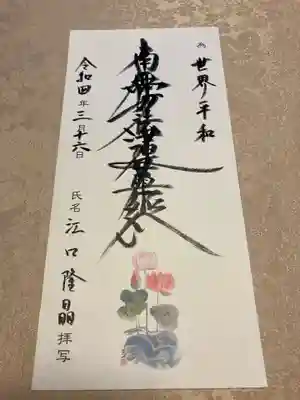 為 世界平和
南無妙法蓮華経
令和四年三月十六日 氏名 江口隆晶 拝写